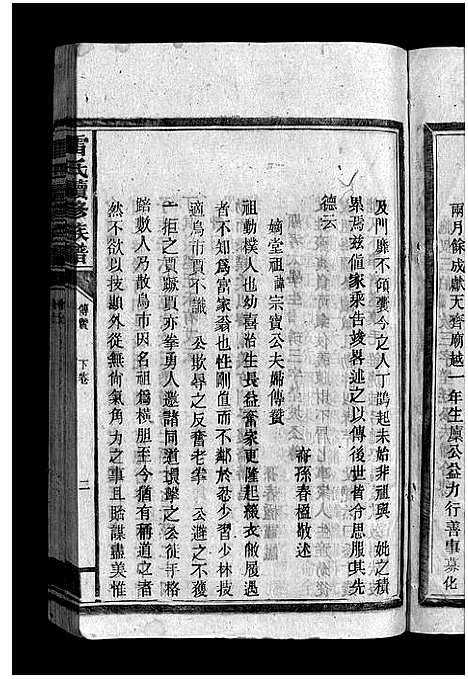 兩月餘成獻天齊廟越一年生廩公益力行善事募化
及門靡不頌冀今之人丁鵲起未始非祖與　妣之積
累焉茲值家乘告竣畧述之以傳後世咨令思服其先
德云
嗣孫春樞敬述
嫡堂祖諱宗寶公夫婦傳贊
祖勤樸人也幼喜治生長益奮家更隆起糗衣敝履遇
者不知爲富家翁也性剛值而不鄰於忍少習少林技
適鳥市賈不識　公欺辱之反奮老拳　公避之不獲
一拒之賈蹶賈亦拳勇人邀諸同道環擊之公徒手格
踣數人乃散鳥市因名祖爲橫胆至今猶有稱道之者
然不欲以技顯外從無尙氣角力之事且貽謀盡美惟
雷氏續修族譜
傳贊　下卷
二